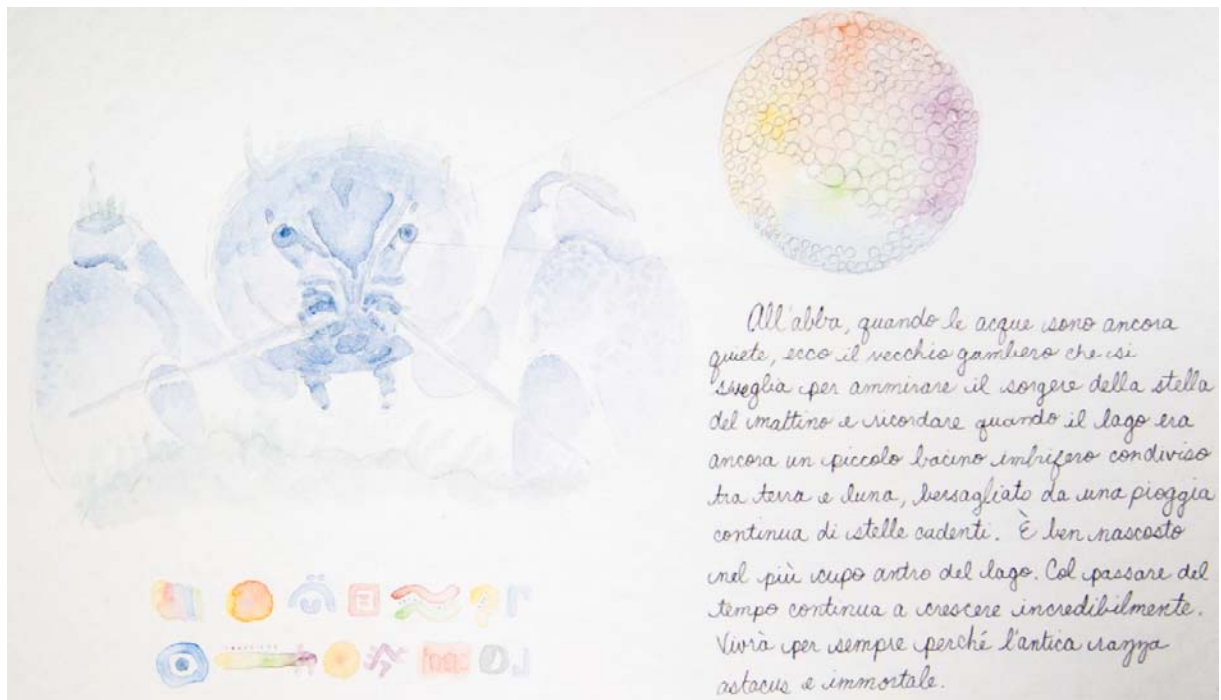 All'abba, quando le acque sono ancora
quiete, ecco il vecchio gambero che si
sveglia per ammirare il sorgere della stella
del mattino e ricordare quando il lago era
ancora un piccolo bacino imbrifero condiviso
tra terra e luna, bersagliato da una pioggia
continua di stelle cadenti. È ben nascosto
nel più cupo antro del lago. Col passare del
tempo continua a crescere incredibilmente.
Vivrà per sempre perché l'antica razza
astacus e immortale.